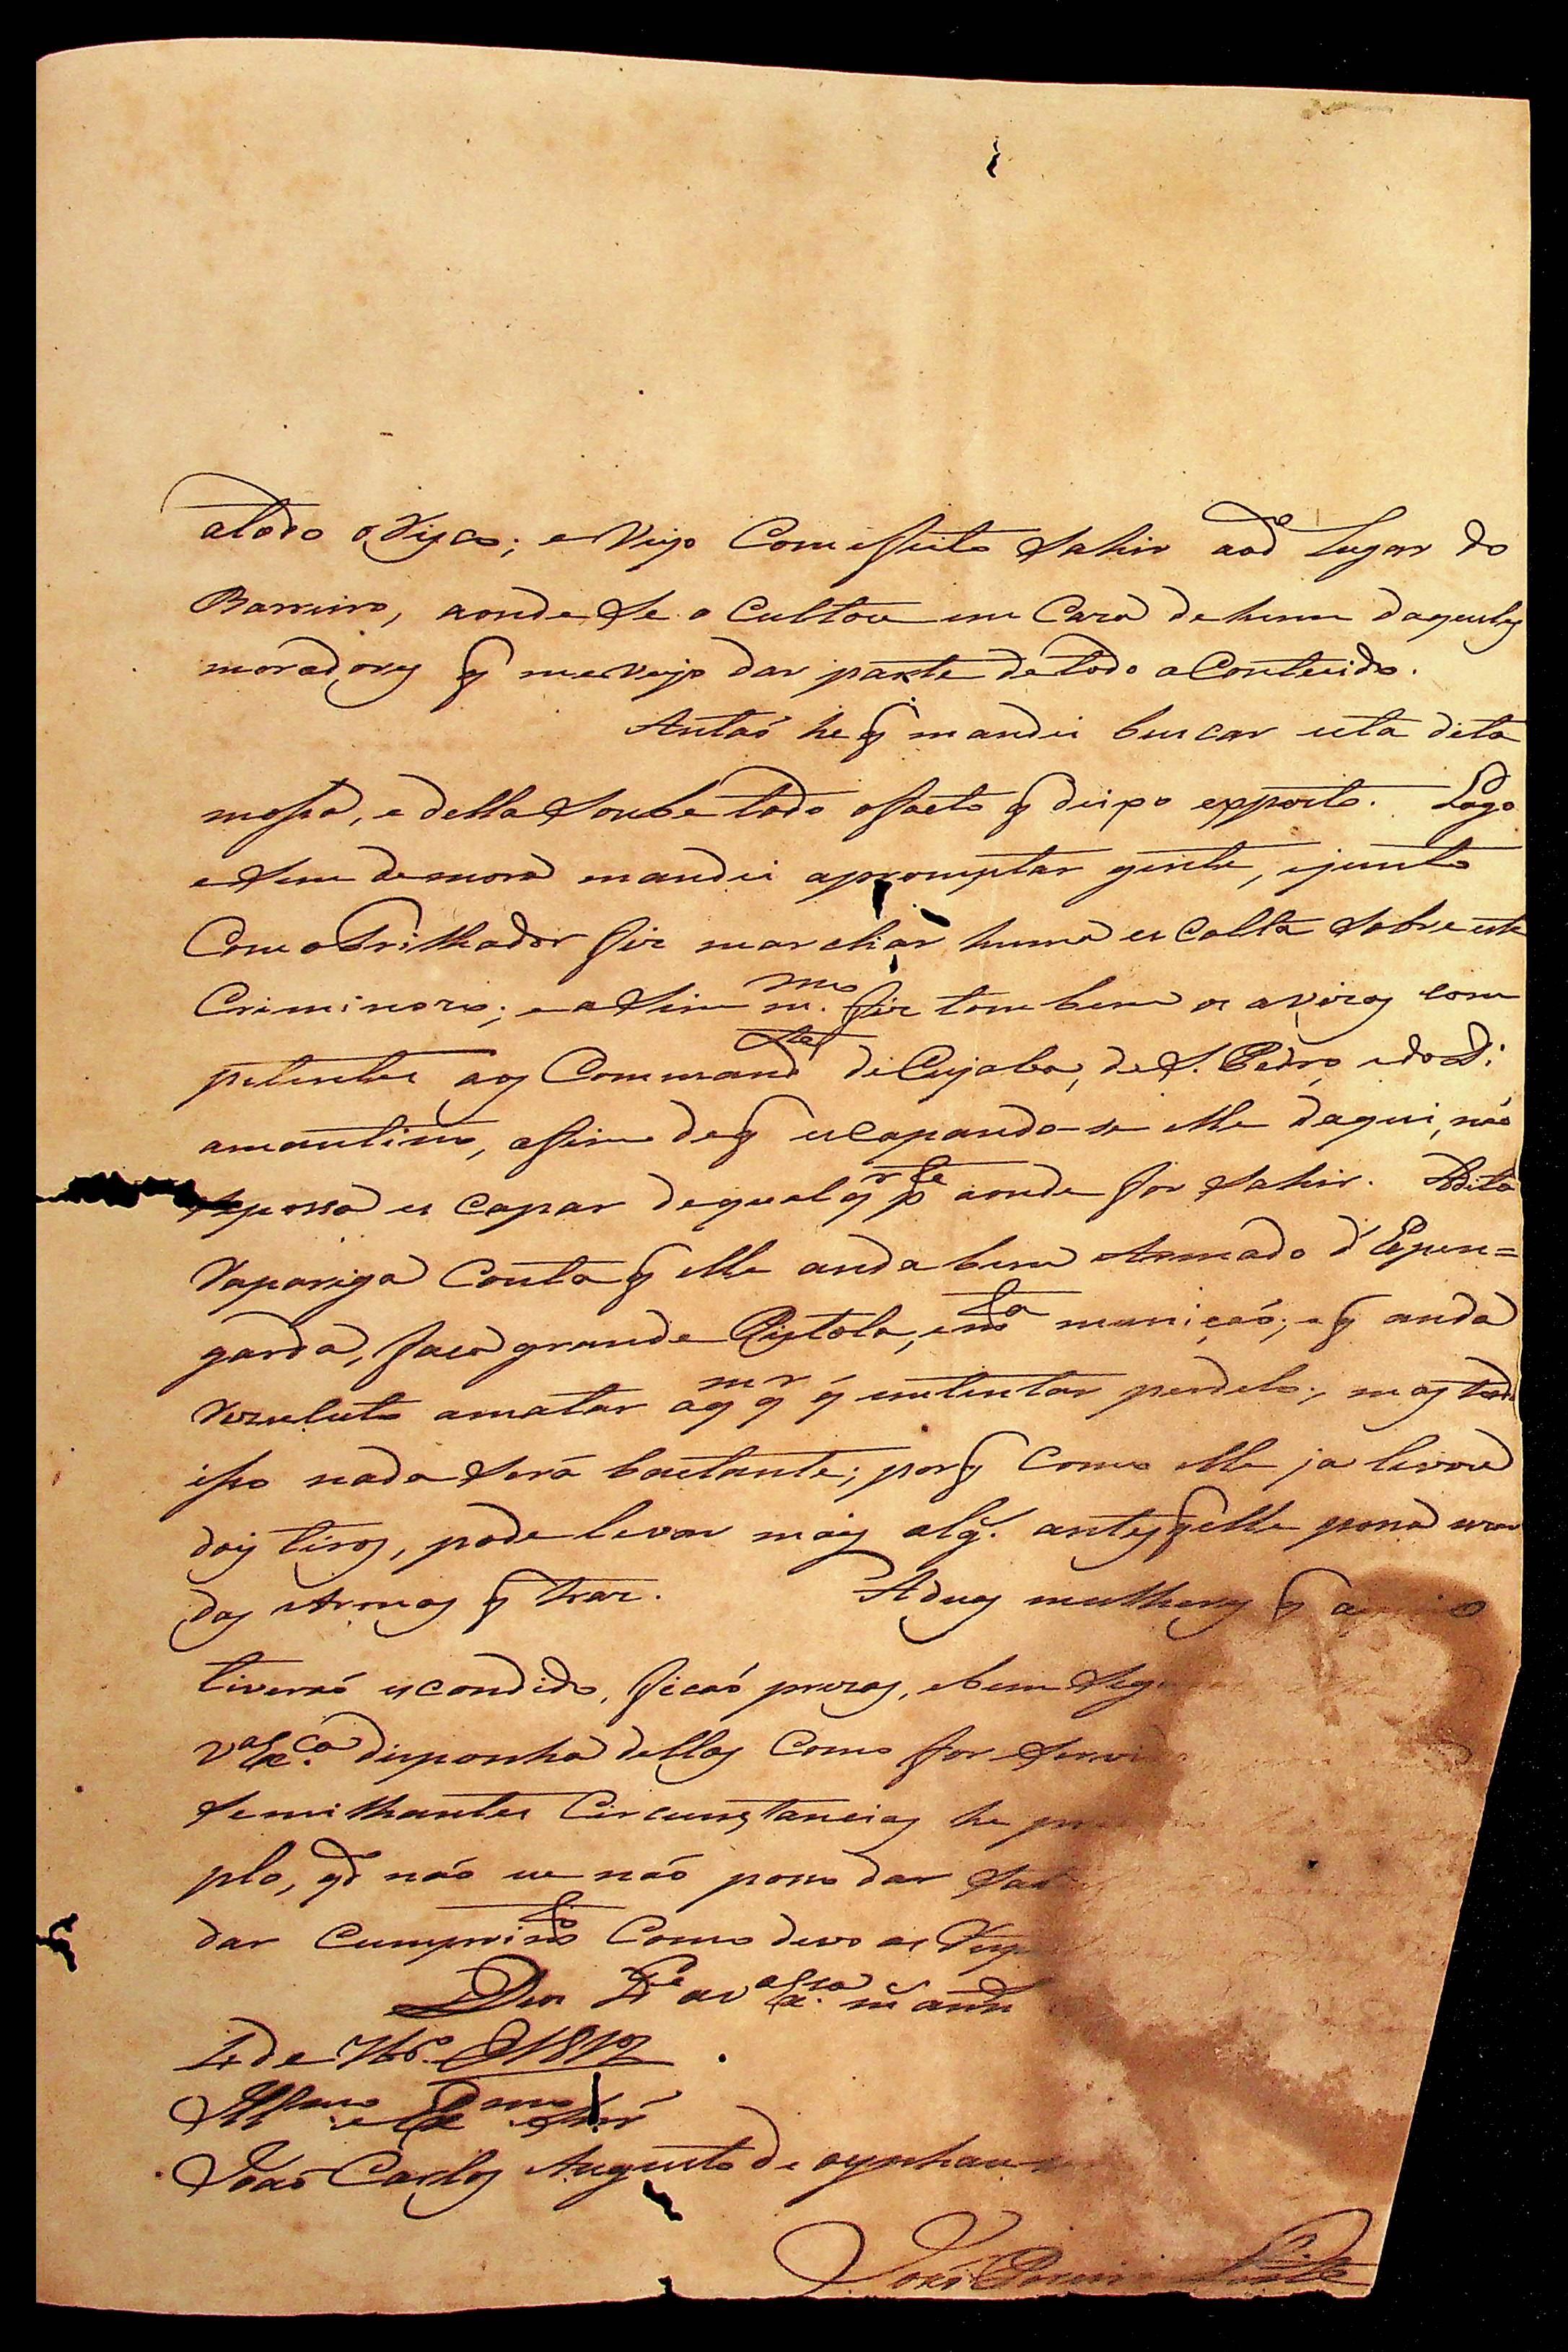 atodo o risco; e veyo Com effeito Sahir aod.e Lugar do
Barreiro, aonde Se o Cultou em Caza de hum daquelles
moradores q me veyo dar parte de todo aContecido.
Antaó he q mandei buscar esta dita
mossa, e della Soube todo ofacto q deixo exposto. Logo
e Sem demora mandei apromptar gente, ejunto
Com oTrilhador fiz marchar huma es Colta Sobre este
Criminozo; e aSim m.mo fiz tombem os avizos com
petentes aos Command.tes deCujaba, de S. Pedro, e do Di
amantino, afim deq escapando-se elle daqui, não
possa es capar dequalq.r p.te aonde for Sahir. Adita
Rapariga Conta q elle anda bem Armado d'Espin=
garda, faca grande Pistola, e m.ta muniçaó; e q anda
Rezoluto amatar aq.m q.r q intentar pendelo; mas todo
isso nada Será bastante; porq Como elle ja levou
dois tiros, pode levar mais alg. antes q elle possa uzar
das Armas q traz. Aduas mulheres q
tiveraó escondido, ficaó prezas, ebem
V.a Ex.ca disponha dellas Como for
Semilhantes Circunstancias he
plo, q.do não eu não posso dar
dar Cumprim.to Como devo as
Deos G.e a V.a Ex.ca m. ann
4 de 7br.o D 1812
Ill.mo e Ex.mo Snr
Joaó Carlos Augusto de oynhau
Joaó Pereira Leite